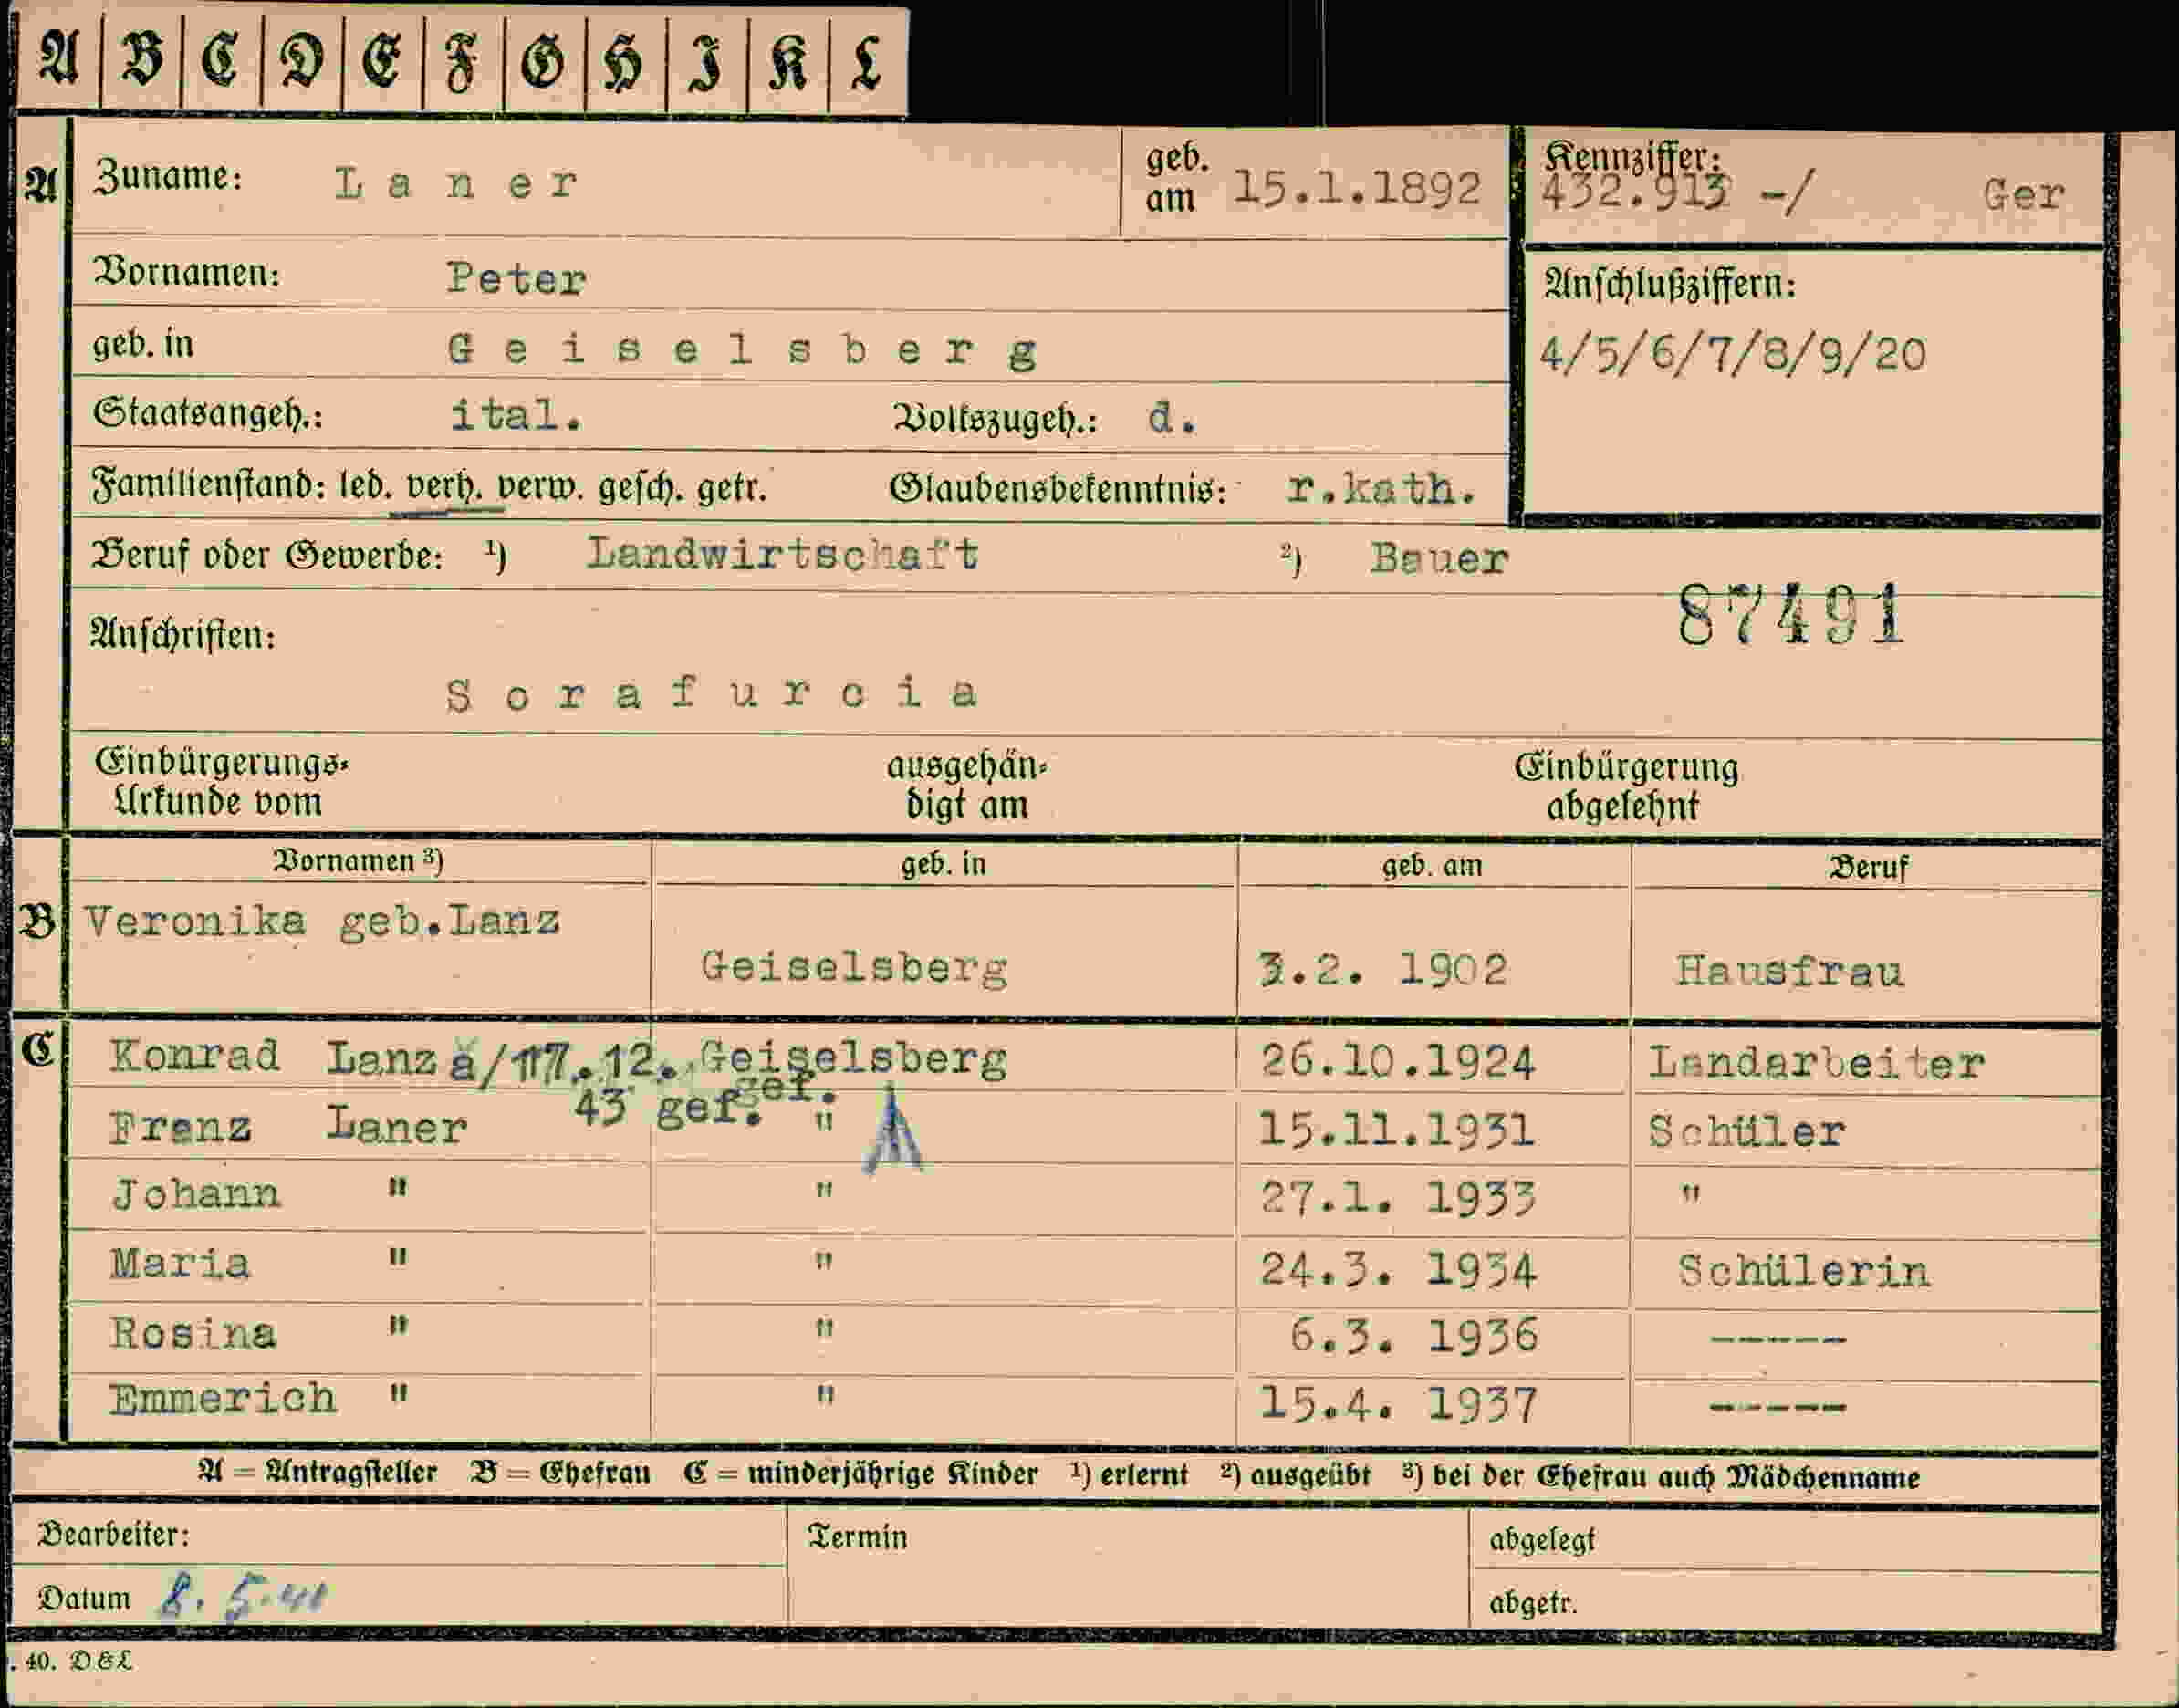 A B C D E F G H I K L
A Zuname: Laner geb. am 15.1.1892 Kennziffer: 432.913 -/ Ger
Vornamen: Peter Anschlußziffern:
geb. in Geiselsberg 4/5/6/7/8/9/20
Staatsangeh.: ital. Volkszugeh.: d.
Familienstand: led. verh. verw. gesch. getr. Glaubensbekenntnis: r.kath.
Beruf oder Gewerbe: ¹) Landwirtschaft ²) Bauer
87491
Anschriften:
Sorafurcia
Einbürgerungs- ausgehän- Einbürgerung
Urkunde vom digt am abgelehnt
Vornamen ³) geb. in geb. am Beruf
B Veronika geb.Lanz
Geiselsberg 3.2. 1902 Hausfrau
C Konrad Lanz a/17.12. Geiselsberg 26.10.1924 Landarbeiter
43 gef. gef.
Franz Laner " 15.11.1931 Schüler
Johann " " 27.1. 1933 "
Maria " " 24.3. 1934 Schülerin
Rosina " " 6.3. 1936 -----
Emmerich " " 15.4. 1937 -----
A = Antragsteller B = Ehefrau C = minderjährige Kinder ¹) erlernt ²) ausgeübt ³) bei der Ehefrau auch Mädchenname
Bearbeiter: Termin abgelegt
Datum 8. 5. 41 abgetr.
. 40. D & L